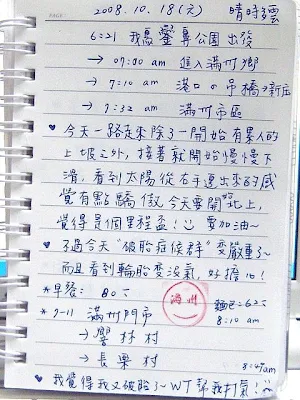 2008.10.18(六) 晴時多雲
6:21 我愿 鑾鼻公園 出發
→ 07:00 am 進入滿州鄉
→ 7:10 am 港口の吊橋→新店
→ 7:32 am 滿州市區
♥ 今天一路走來除了一開始有累人的
上坡之外,接著就開始慢慢下
滑,看到太陽從右手邊出來的感
覺有點驕傲,今天要開始北上,
覺得是個里程盃! 要加油~
♥ 不過今天"破胎症候群"變嚴重了~
而且看到輪胎變沒氣,好擔心!
*早餐: 80元
*7-11 滿州門市
滿州
麵包=625
8:10 am
→ 響林村
→ 長樂村
8:49am
♥ 我覺得我又破胎了~ WT幫我打氣!